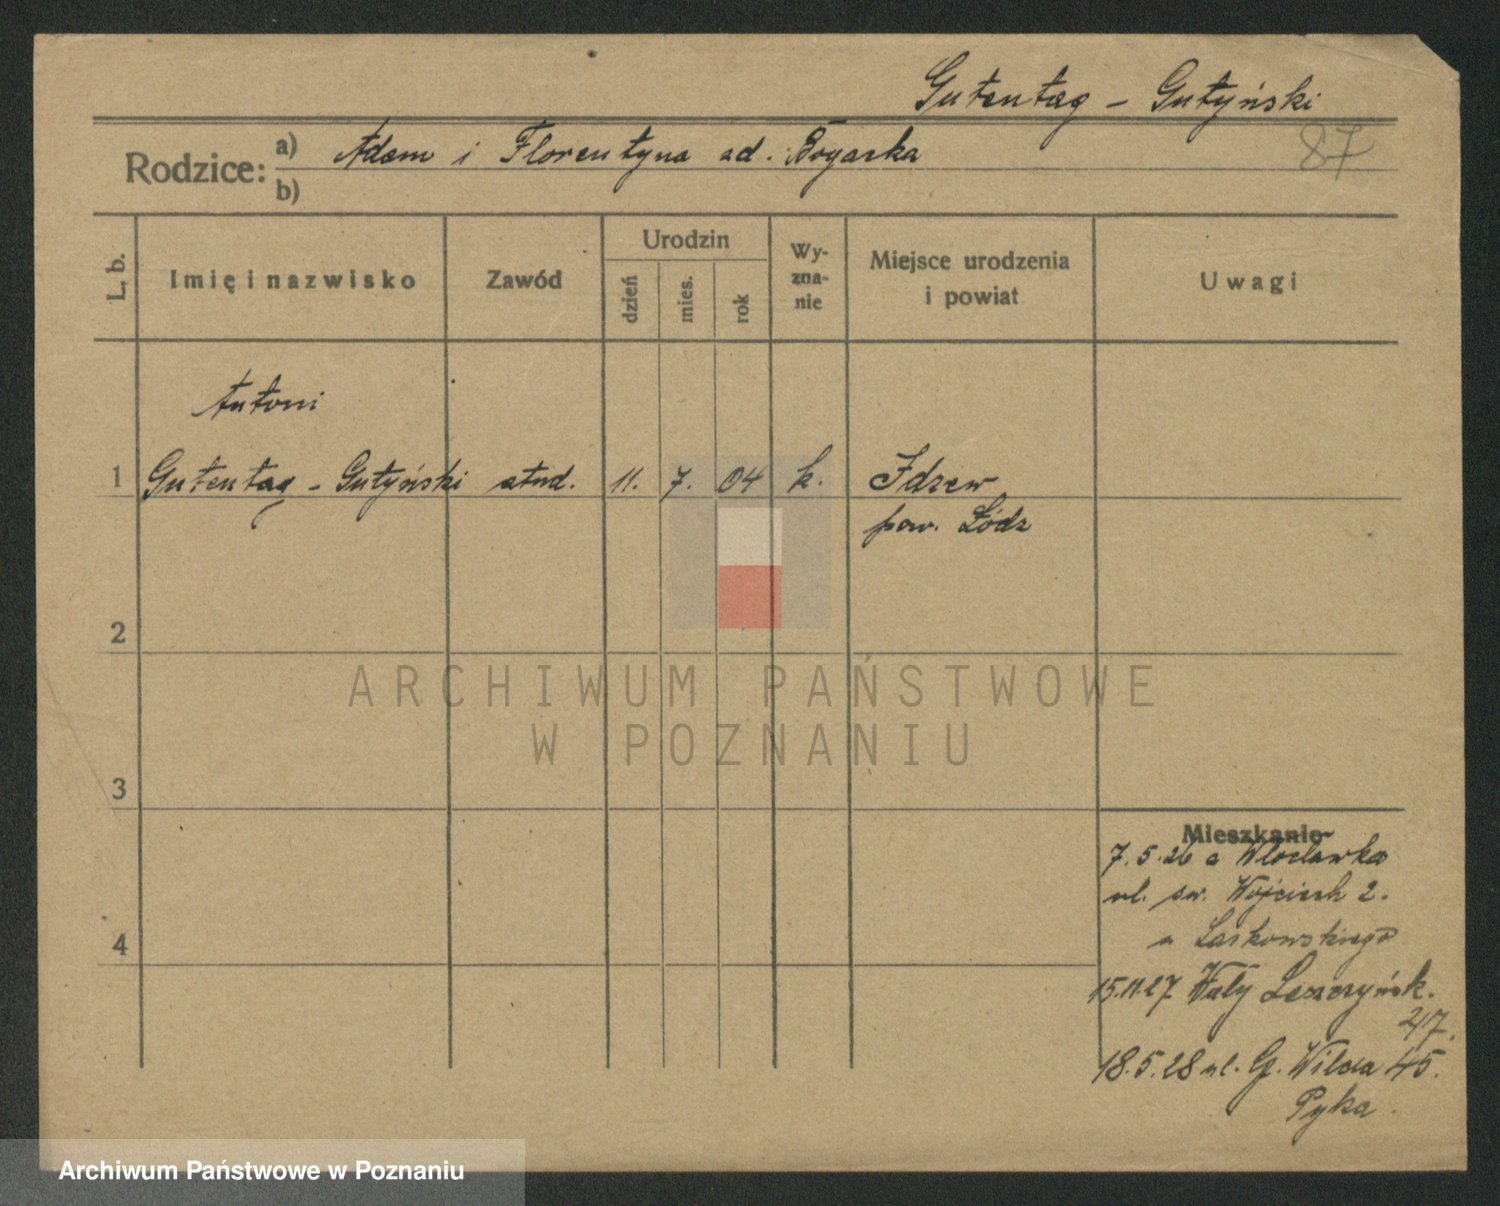 Gutentag - Gutyński
87
Rodzice: a) Adam i Florentyna ad. Bogacka
b)
L. b.
Imię i nazwisko
Zawód
Urodzin
dzień
mies.
rok
Wy-
zna-
nie
Miejsce urodzenia
i powiat
Uwagi
Antoni
1 Gutentag - Gutyński stud. 11. 7. 04 k. Idzew
pow. Łódz
2
3
4
ARCHIWUM PAŃSTWOWE
W POZNANIU
Mieszkanie
7.5.26 z Włocławka
ul. św. Wojciech 2.
u Laskowskiego
15.11.27 Wały Leszczyńsk.
2/7.
18.5.28 ul. G. Wilda 45.
Pyka.
Archiwum Państwowe w Poznaniu